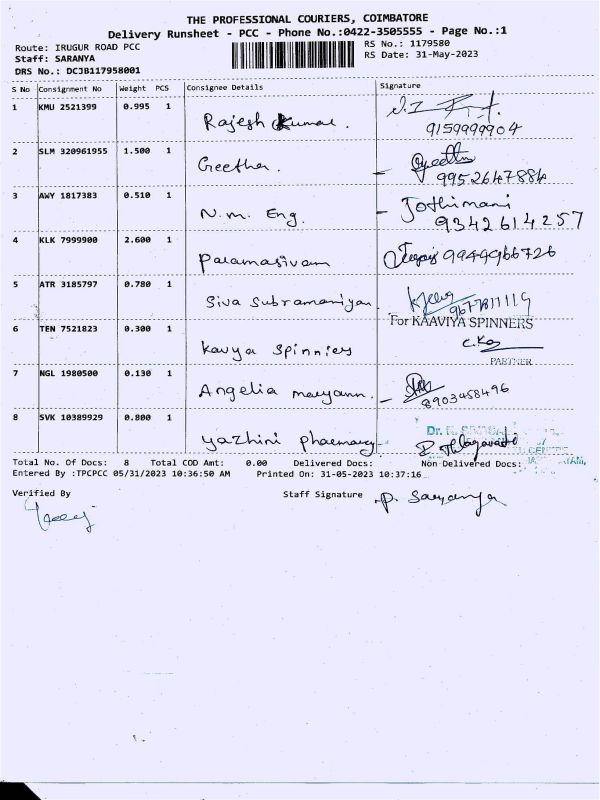 THE PROFESSIONAL COURIERS, COIMBATORE
Delivery Runsheet - PCC - Phone No.:0422-3505555 - Page No.:1
Route: IRUGUR ROAD PCC RS No.: 1179580
Staff: SARANYA RS Date: 31-May-2023
DRS No.: DCJB117958001
S No Consignment No Weight PCS Consignee Details Signature
1 KMU 2521399 0.995 1 Rajesh Kumar.
9159999904
2 SLM 320961955 1.500 1 Geetha. Geetha
9952647884
3 AWY 1817383 0.510 1 N.M. Eng. - Jothimani
9342614257
4 KLK 7999900 2.600 1 Paramasivam 9949966726
5 ATR 3185797 0.780 1 Siva Subramaniyan
9677811119
For KAAVIYA SPINNERS
6 TEN 7521823 0.300 1 Kavya Spinnies
PARTNER
7 NGL 1980500 0.130 1 Angelia maryann.
8903458496
8 SVK 10389929 0.800 1 yazhini pharmacy
Total No. Of Docs: 8 Total COD Amt: 0.00 Delivered Docs: Non-Delivered Docs:
Entered By :TPCPCC 05/31/2023 10:36:50 AM Printed On: 31-05-2023 10:37:16
Verified By Staff Signature P. Saranya